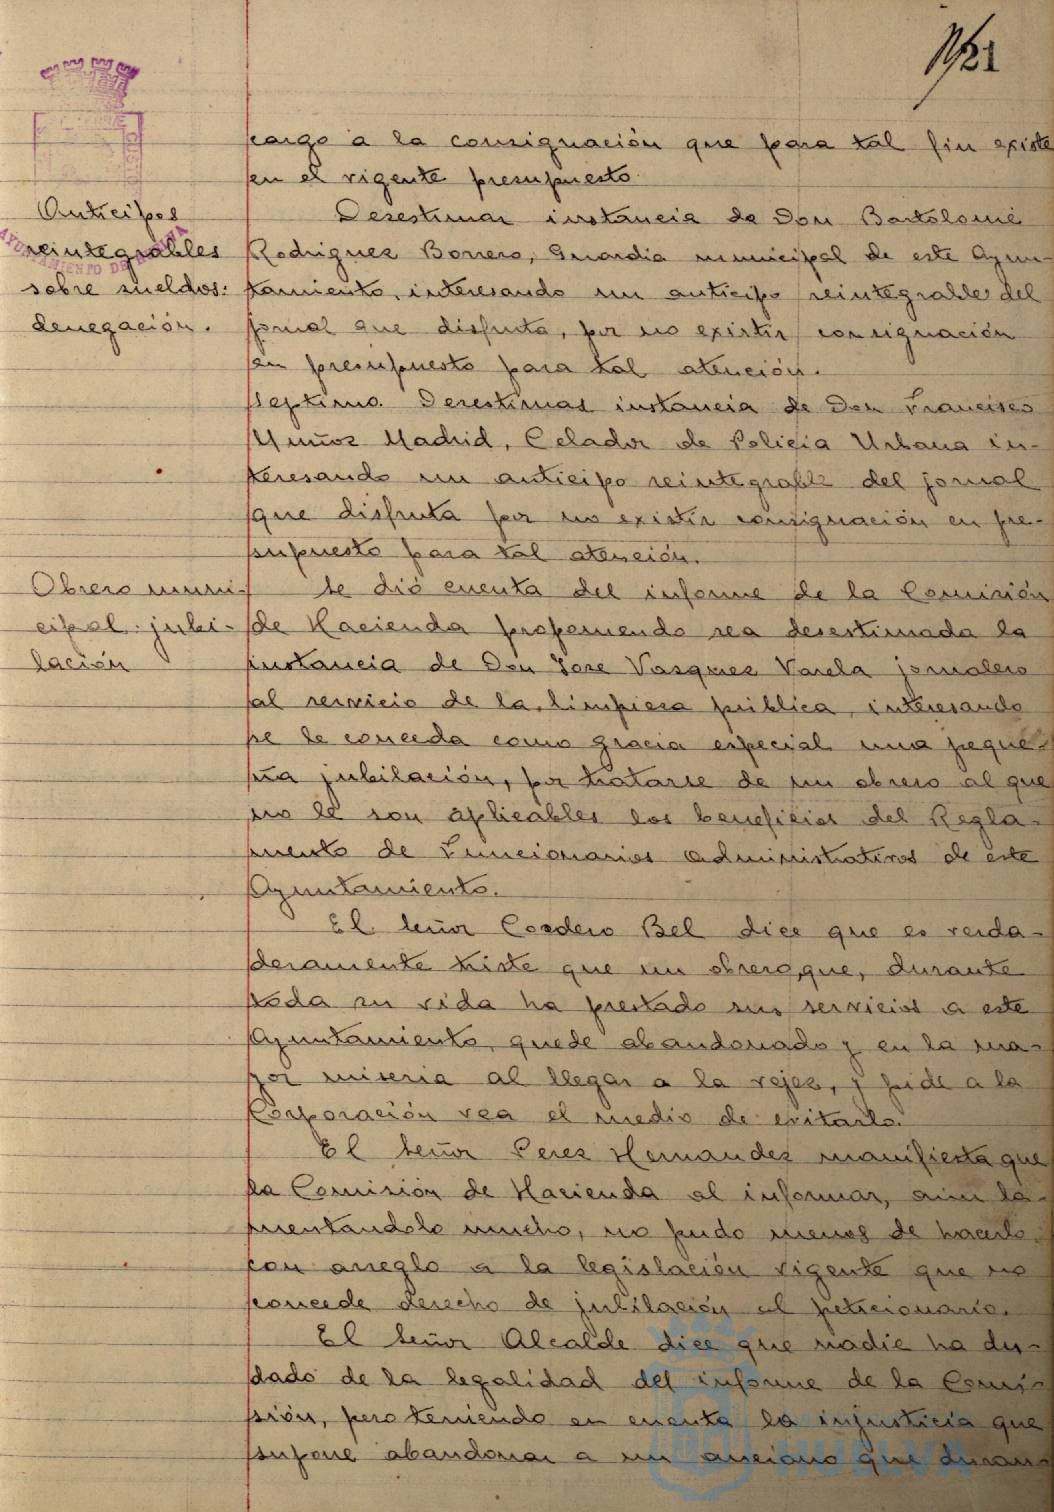 21
cargo a la consignación que para tal fin existe
en el vigente presupuesto.
Anticipos
reintegrables
sobre sueldos:
denegación.
AYUNTAMIENTO DE HUELVA
Desestimar instancia de Don Bartolomé
Rodriguez Borrero, Guardia municipal de este Ayun-
tamiento, interesando un anticipo reintegrable del
jornal que disfruta, por no existir consignación
en presupuesto para tal atención.
Septimo. Desestimar instancia de Don Francisco
Muñoz Madrid, Celador de Policia Urbana in-
teresando un anticipo reintegrable del jornal
que disfruta por no existir consignación en pre-
supuesto para tal atención.
Obrero muni-
cipal: jubi-
lación
Se dió cuenta del informe de la Comisión
de Hacienda proponiendo sea desestimada la
instancia de Don Jose Vasquez Varela jornalero
al servicio de la limpieza pública, interesando
se le conceda como gracia especial una peque-
ña jubilación, por tratarse de un obrero al que
no le son aplicables los beneficios del Regla-
mento de Funcionarios administrativos de este
Ayuntamiento.
El Señor Cordero Bel dice que es verda-
deramente triste que un obrero, que, durante
toda su vida ha prestado sus servicios a este
Ayuntamiento, quede abandonado y en la ma-
yor miseria al llegar a la vejez, y pide a la
Corporación vea el medio de evitarlo.
El Señor Perez Hernandez manifiesta que
la Comisión de Hacienda al informar, aún la-
mentandolo mucho, no pudo menos de hacerlo
con arreglo a la legislación vigente que no
concede derecho de jubilación al peticionario.
El Señor Alcalde dice que nadie ha du-
dado de la legalidad del informe de la Comi-
sión, pero teniendo en cuenta la injusticia que
supone abandonar a un anciano que duran-
HUELVA